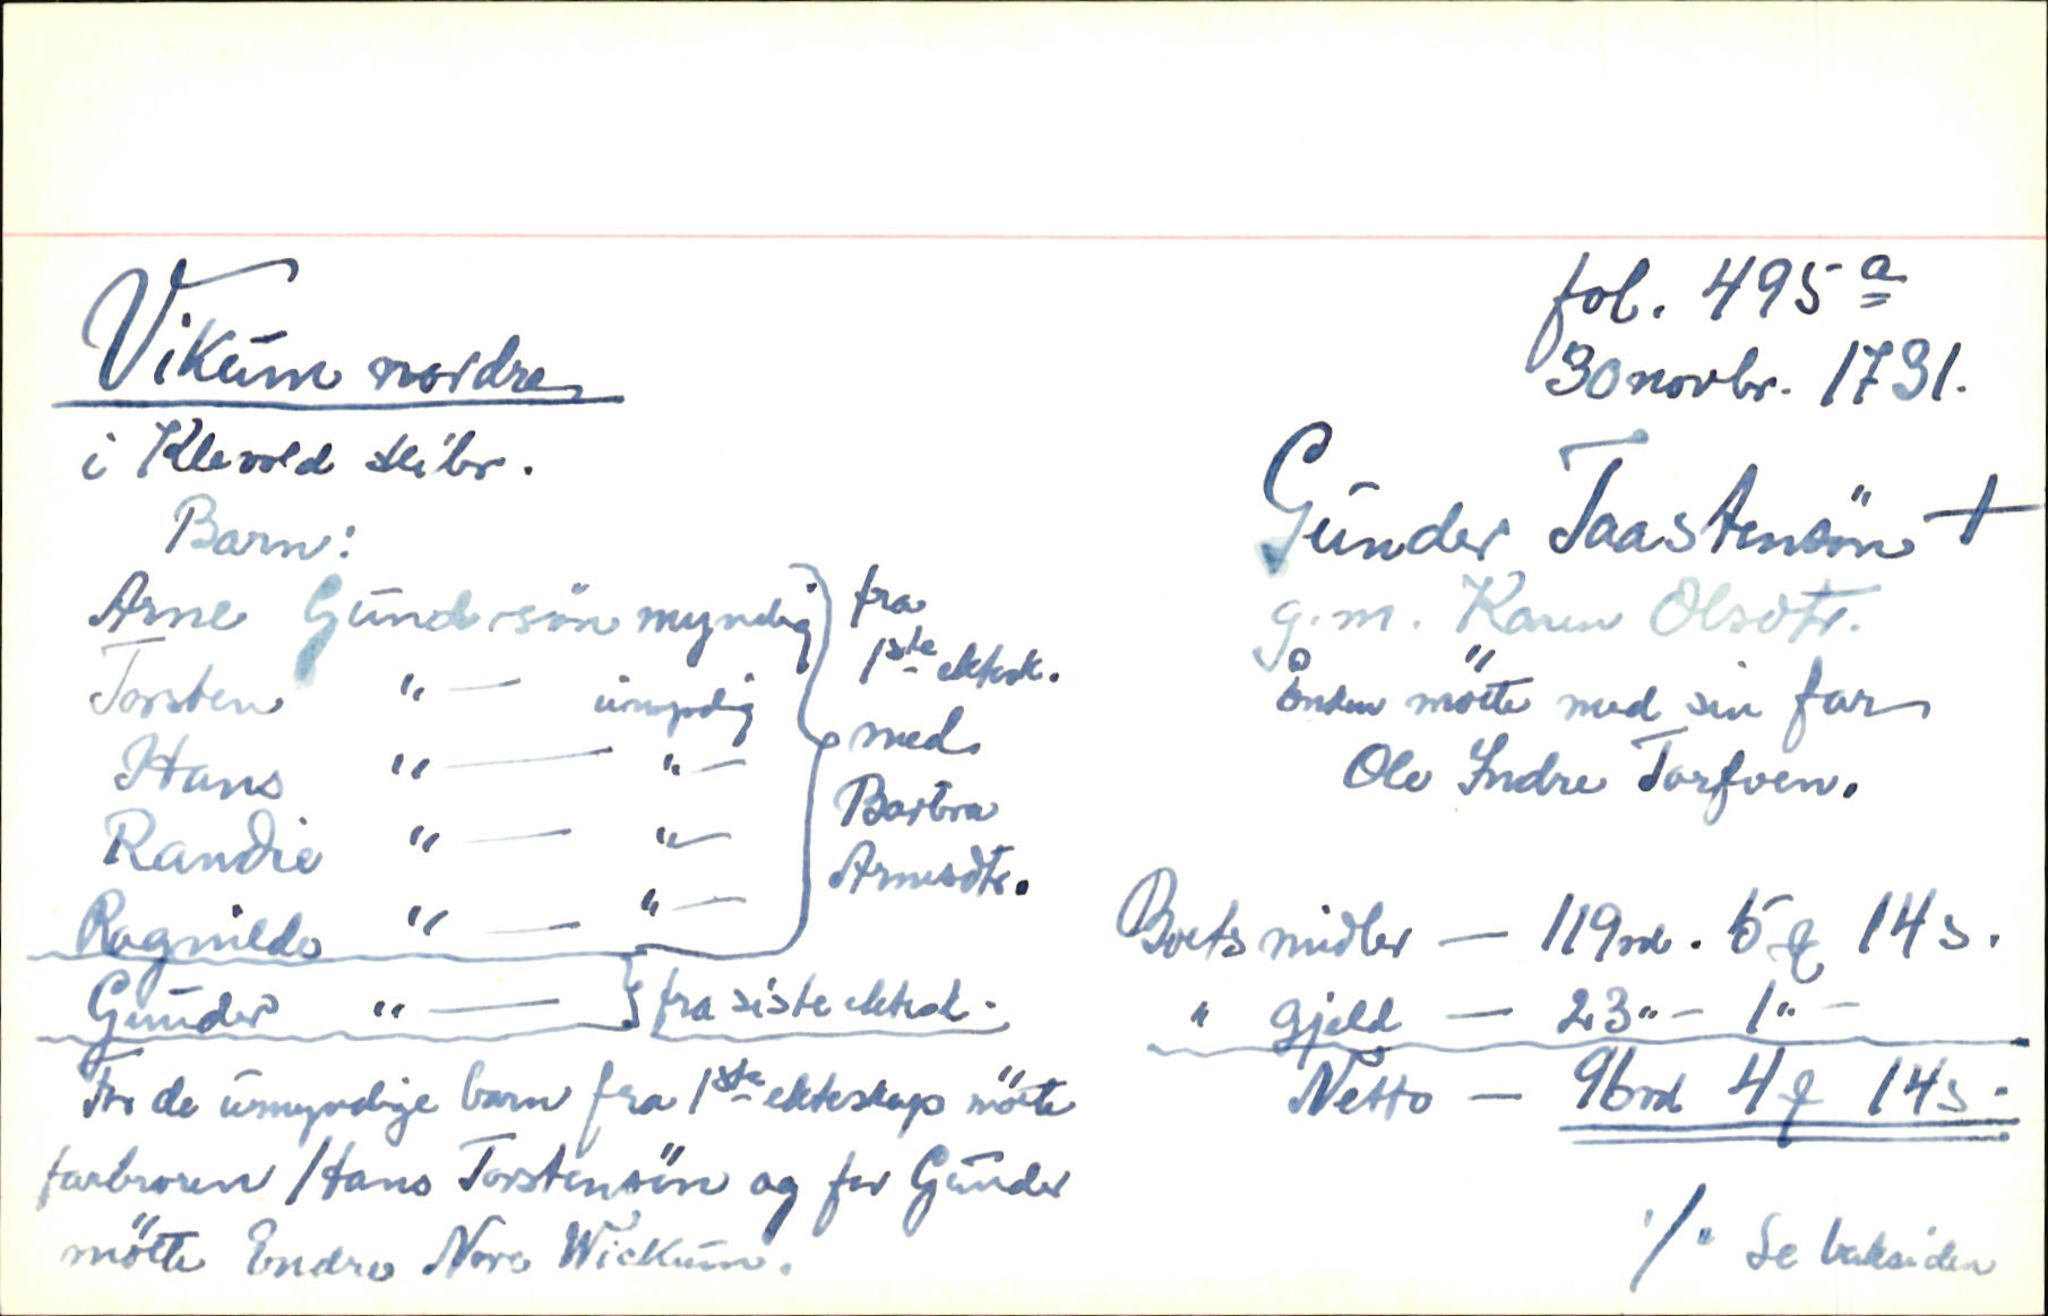 Vikum nordre
i Klevold skibr.
Barn:
Arne Gundersön myndig
Torsten " — umyndig
Hans " — " —
Randie " — " —
Ragnilde " — " —
fra
1ste ektesk.
med
Barbra
Arnesdtr.
Gunder " — fra siste ektesk.
For de umyndige barn fra 1ste ekteskap mötte
farbroren Hans Torstensön og for Gunder
mötte Endre Nore Wickum.
fol. 495 a
30 novbr. 1731.
Gunder Taastensön +
g.m. Karen Olsdtr.
Enken mötte med sin far
Ole Indre Torfven.
Boets midler — 119 rd. 5 q 14 s.
" gjeld — 23 " – 1 " –
Netto — 96 rd 4 q 14 s.
·/· Se baksiden